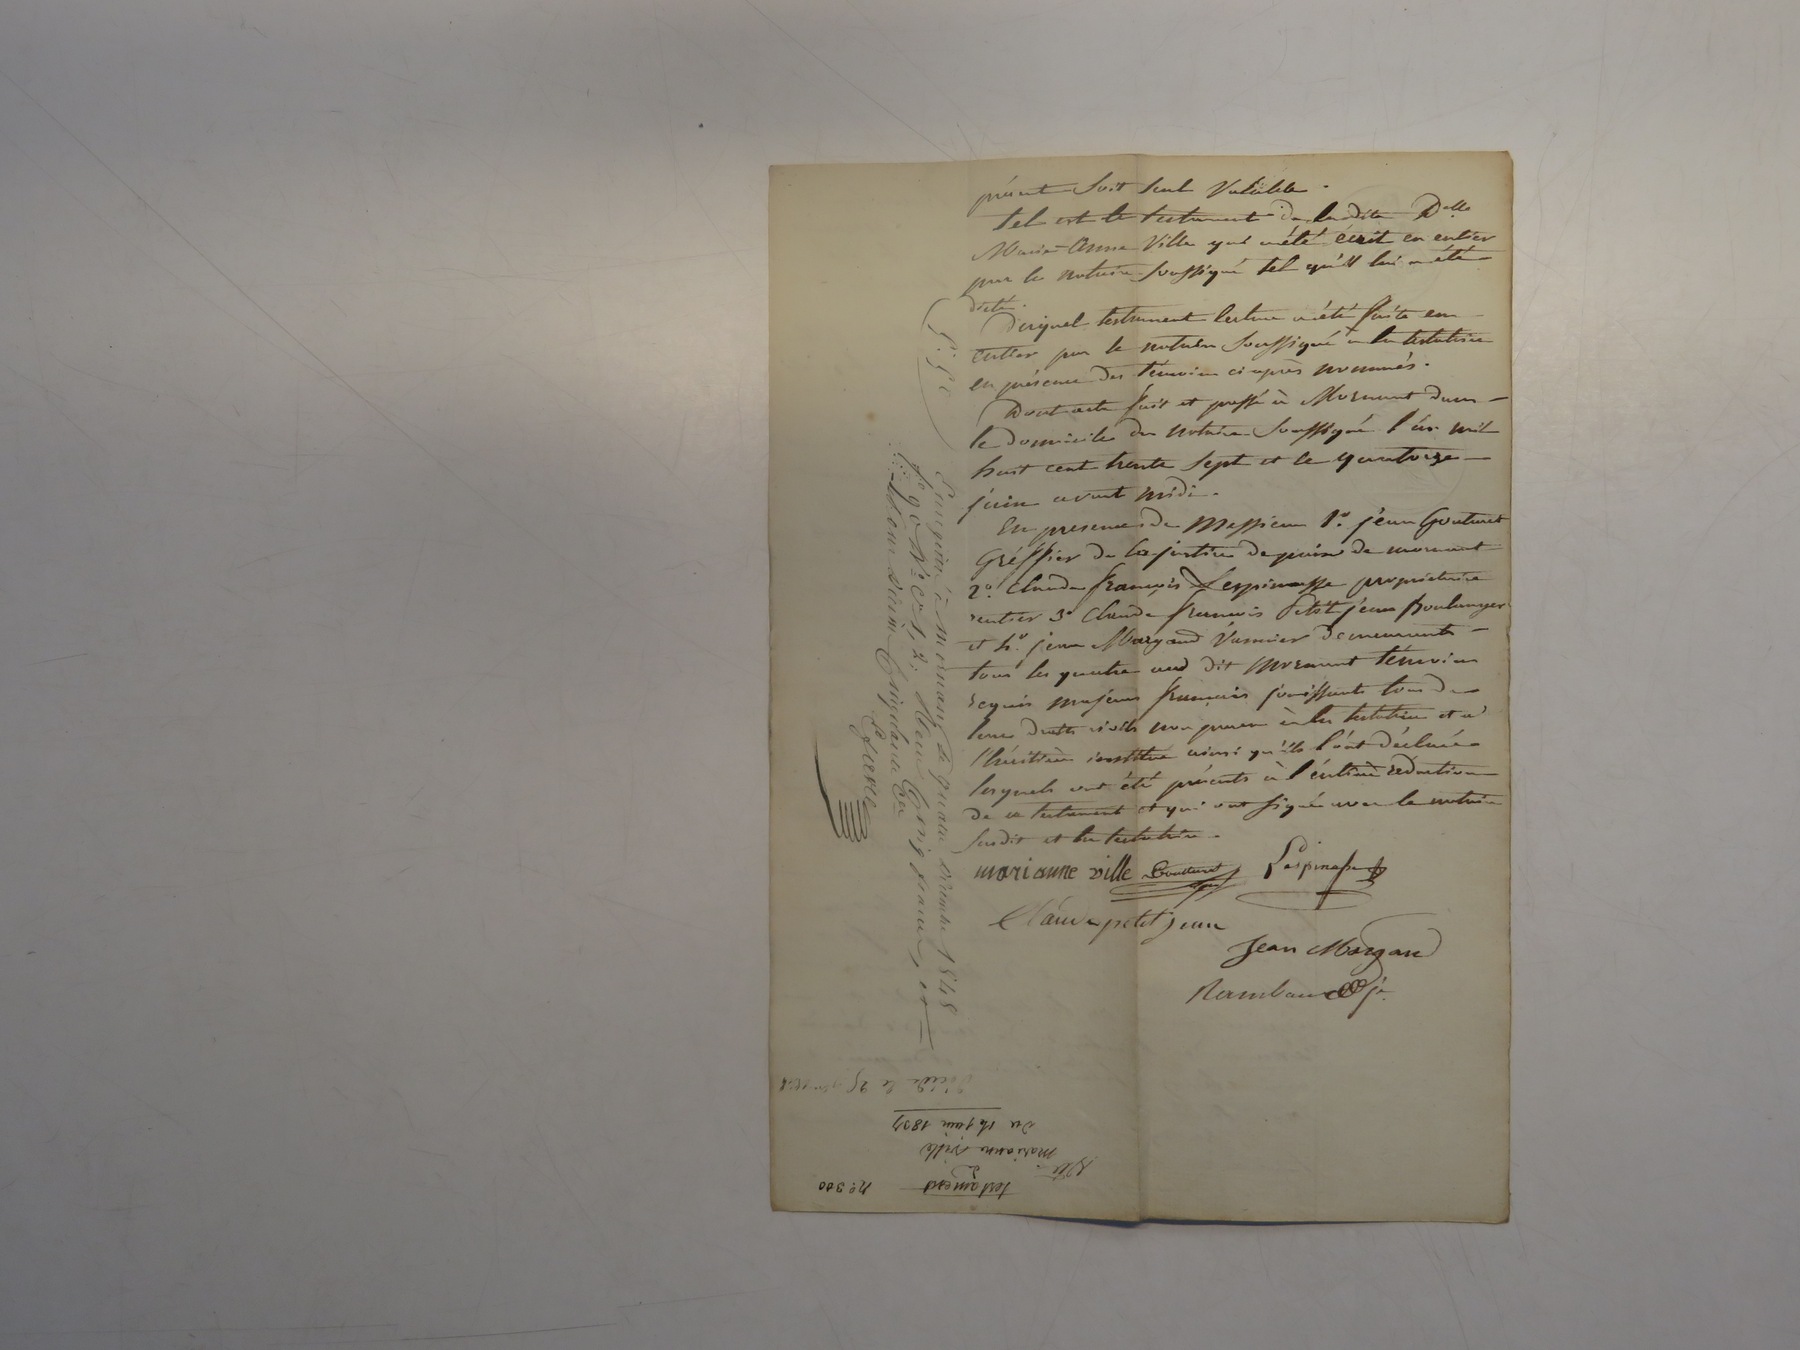 présent soit seul valable.
tel est le testament de la dite Delle
Marie-Anne Ville qui a été écrit en entier
par le notaire soussigné tel qu'il lui a été
dicté.
Duquel testament lecture a été faite en
entier par le notaire soussigné à la testatrice
en présence des témoins ci après nommés.
Dont acte fait et passé à Mornant dans
le domicile du notaire soussigné l'an mil
huit cent trente sept et le quatorze
juin avant midi.
En presence de Messieurs 1o. jean Goutaret
Gréffier de la justice de paix de mornant
2o. Claude françois Lespinasse propriétaire
rentier 3o Claude francois Petit jean boulanger
et 4o. jean Margand vannier demeurants
tous les quatre au dit Mornant témoins
requis majeurs français jouissants tous de
leurs droits civils non parens à la testatrice et à
l'héritière instituée ainsi qu'ils l'ont déclaré
lesquels ont été présents à l'entière rédaction
de ce testament et qui ont signé avec le notaire
susdit et la testatrice.
marianne ville Lespinasse
Claude petit jean
Jean Margand
Enregistré à mornant le quatre 1848
fo 90 Ro co 1, 2. Reçu cinq francs, et
décime cinquante ces
Décédé le 25
No. 300
testament
De
marianne Ville
du 14 juin 1837